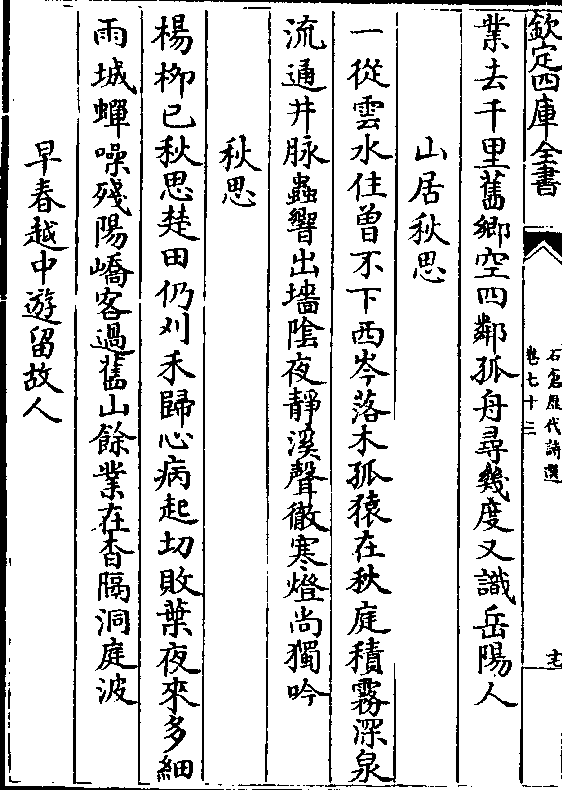 欽定四庫全書
石倉歷代詩選
卷七十二
業去千里舊鄉空四鄰孤舟尋幾度又識岳陽人
山居秋思
一從雲水住曾不下西岑落木孤猿在秋庭積霧深泉
流通井脉蟲響出墻陰夜靜溪聲徹寒燈尚獨吟
秋思
楊柳已秋思楚田仍刈禾歸心病起切敗葉夜來多細
雨城蟬噪殘陽嶠客過舊山餘業在杳隔洞庭波
早春越中遊留故人